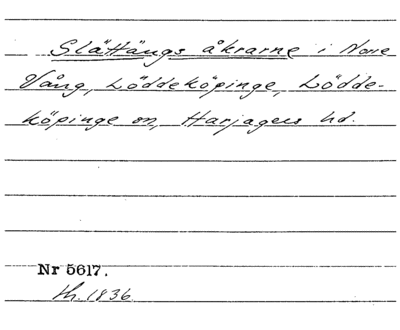 Slättängs åkrarne i Norre
Vång, Löddeköpinge, Lödde-
köpinge sn, Harjagers hd.
Nr 5617.
th. 1836